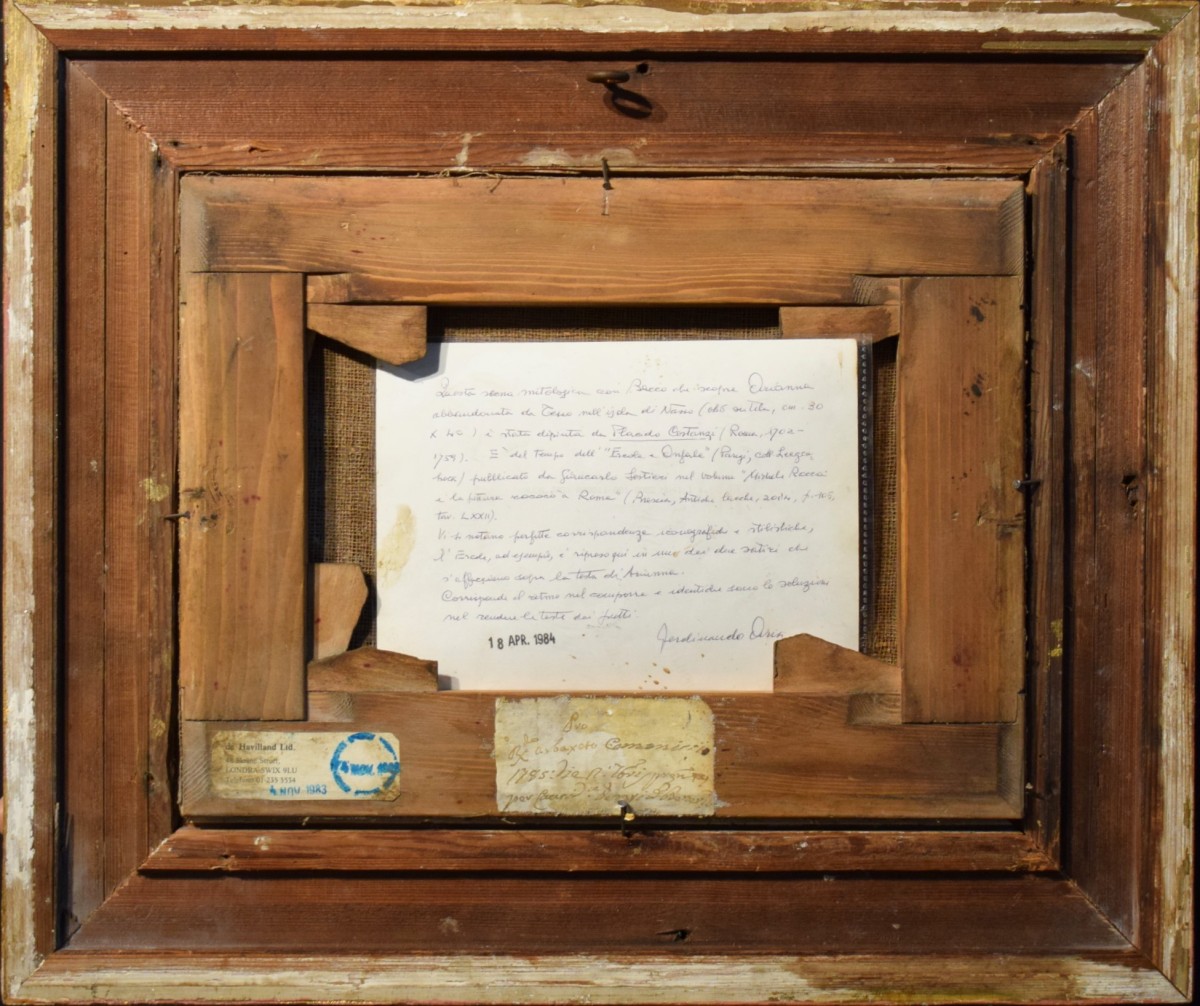 Questa scena mitologica con Bacco che scopre Arianna
abbandonata da Teseo nell'isola di Nasso (olio su tela, cm. 30
x 40) è stata dipinta da Placido Costanzi (Roma, 1702-
1759). E' del tempo dell' "Ercole e Onfale" (Parigi, coll.
pubblicato da Giancarlo Sestieri nel volume "Michele Rocca
e la pittura rococò a Roma" (Brescia, Antiche 2004, p. 105,
tav. LXXII).
Vi si notano perfette corrispondenze iconografiche e stilistiche,
l'Ercole, ad esempio, è ripreso qui in uno dei due satiri che
s'affacciano sopra la testa di Arianna.
Corrisponde il ritmo nel comporre e identiche sono le soluzioni
nel rendere le teste dei putti
18 APR. 1984
Ferdinando Arisi
de Havilland Ltd.
Street,
LONDRA SWIX 9LU
235 3534
4 NOV. 1983
4 NOV. 198
1795